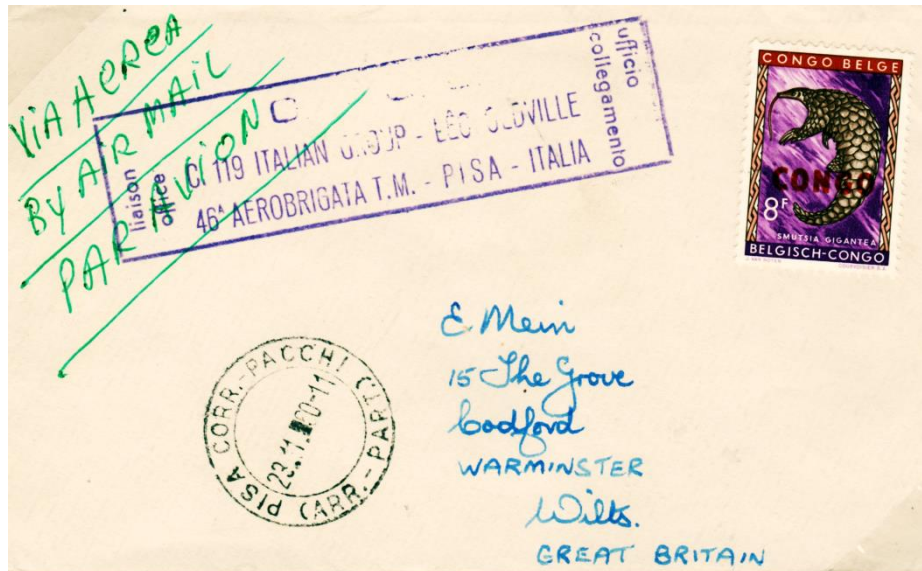 ViA AEREA
BY AIR MAIL
PAR AVION
liaison
office
CI 119 ITALIAN GROUP - LEOPOLDVILLE
46ª AEROBRIGATA T.M. - PISA - ITALIA
ufficio
collegamento
CONGO BELGE
CONGO
8F
SMUTSIA GIGANTEA
BELGISCH-CONGO
PISA CORR.-PACCHI
(ARR.-PART.)
23.11. 60-11
E. Mein
15 The Grove
Codford
WARMINSTER
Wilts.
GREAT BRITAIN